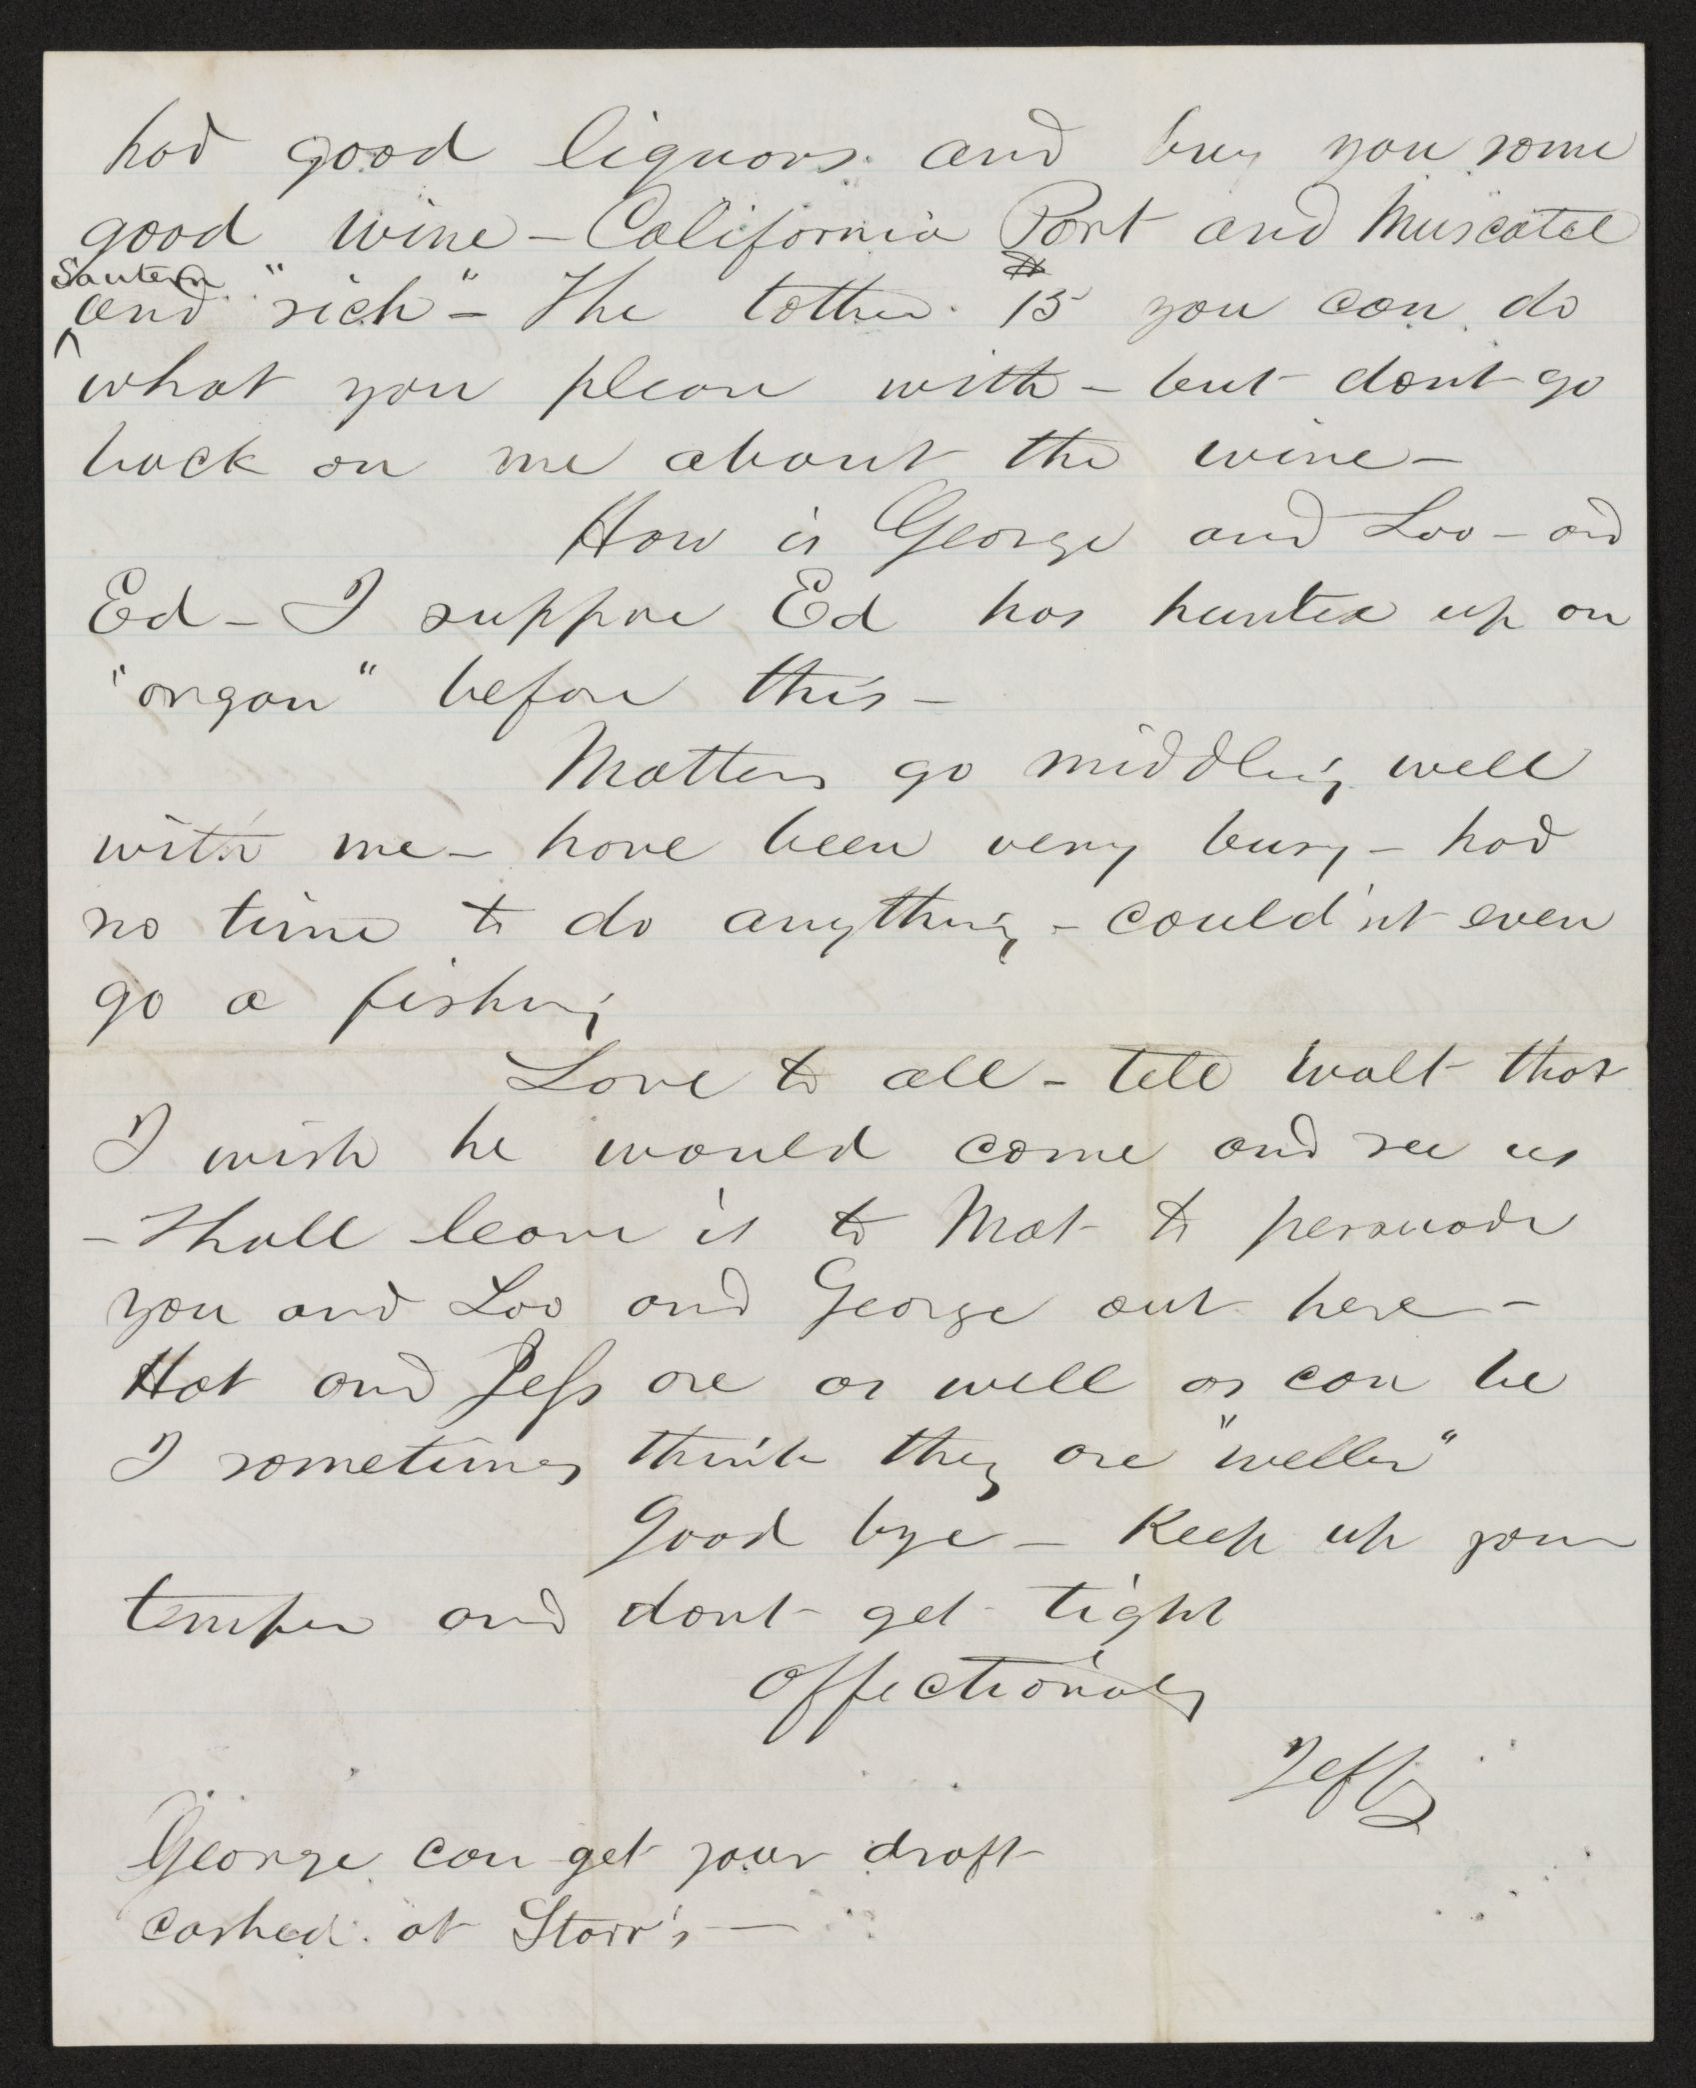 had good liquors and buy you some
good wine – California Port and Muscatel
Sautern
and "rich" – The tother $15 you can do
what you please with – but dont go
back on me about the wine –
How is George and Loo – and
Ed – I suppose Ed has hunted up an
"organ" before this –
Matters go middling well
with me – have been very busy – had
no time to do anything – could'nt even
go a fishing
Love to all – tell Walt that
I wish he would come and see us
– Shall leave it to Mat to persuade
you and Loo and George out here –
Hat and Jess are as well as can be
I sometimes think they are "weller"
Good bye – Keep up your
temper and dont get tight
affectionaly
Jeff
George can get your draft
cashed at Storr's –